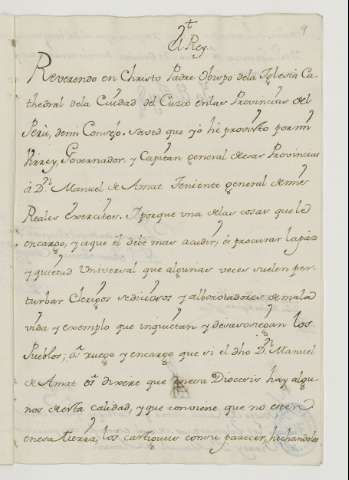 El Rey
Reverendo en Christo Padre Obispo dela Iglesia Ca-
thedral dela Ciudad del Cuzco enlas Provincias del
Perù, demi Consejo. Saved que yó hé provisto por mi
Virrey, Governador, y Capitan general de esas Provincias
à Dn. Manuel de Amat Teniente general de mis
Reales Exercitos. Y porque una delas cosas que le
encargo, y aque él debe mas acudir, és procurar la paz
y quietud Universal que algunas veces suelen per-
turbar Clerigos sediciosos y alborotadores de mala
vida y exemplo que inquietan y desasosiegan los
Pueblos; os ruego y encargo que si el dho Dn. Manuel
de Amat os dixere que enesa Diocesis hay algu-
nos de esta calidad, y que conviene que no esten
enesa tierra, los castigueis consu parecer, hechandolos